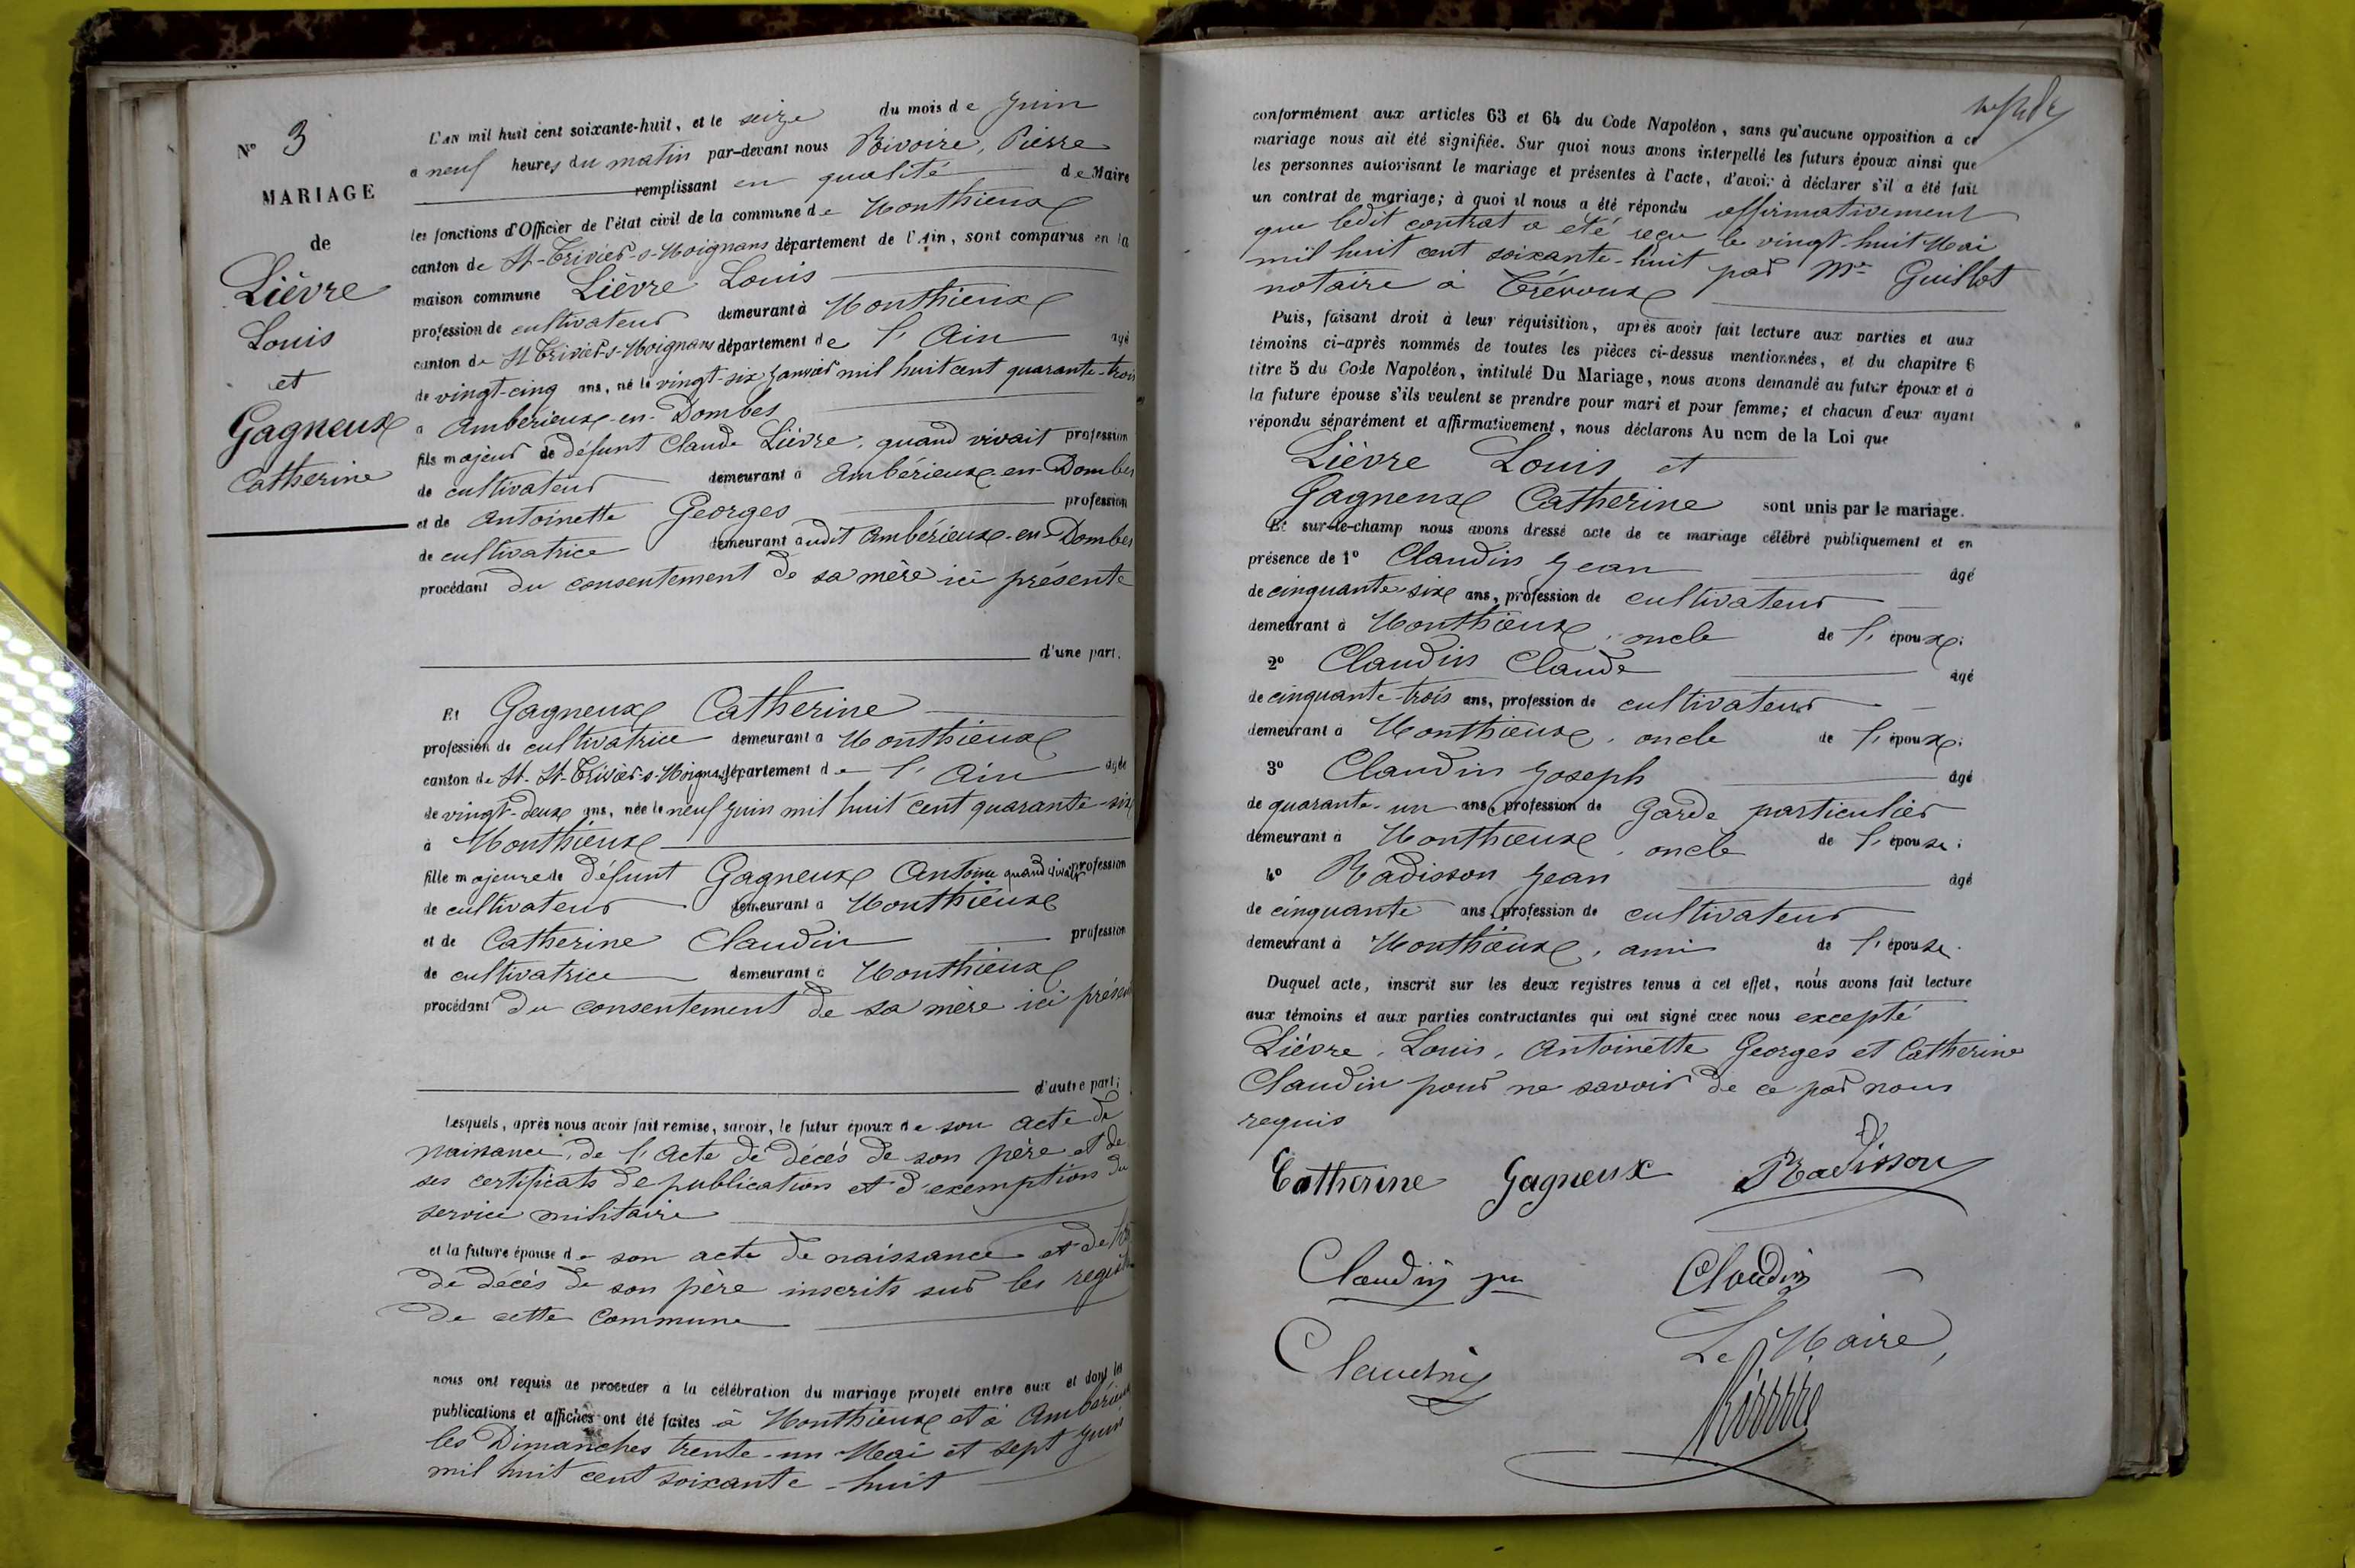 N° 3
MARIAGE
de
Lièvre
Louis
et
Gagneux
Catherine
L'AN mil huit cent soixante-huit, et le seize du mois de Juin
a neuf heures du matin par-devant nous Rivoire, Pierre
remplissant en qualité de Maire
les fonctions d'Officier de l'état civil de la commune de Monthieux
canton de St-Trivier-s-Moignans département de l'Ain, sont comparus en la
maison commune Lièvre Louis
profession de cultivateur demeurant à Monthieux
canton de St Trivier-s-Moignans département de l'Ain agé
de vingt-cinq ans, né le vingt-six Janvier mil huit cent quarante-trois
a Ambérieux-en-Dombes
fils majeur de défunt Claude Lièvre, quand vivait profession
de cultivateur demeurant à Ambérieux-en-Dombes
et de Antoinette Georges profession
de cultivatrice demeurant audit Ambérieux-en-Dombes
procédant du consentement de sa mère ici présente
d'une part.
Et Gagneux Catherine
profession de cultivatrice demeurant a Monthieux
canton de St-St-Trivier-s-Moignans département de l'Ain agée
de vingt-deux ans, née le neuf Juin mil huit cent quarante-six
à Monthieux
fille majeure de défunt Gagneux Antoine quand vivait profession
de cultivateur demeurant a Monthieux
et de Catherine Claudin profession
de cultivatrice demeurant à Monthieux
procédant du consentement de sa mère ici présente
d'autre part;
Lesquels, après nous avoir fait remise, savoir, le futur époux de son acte de
naissance, de l'acte de décès de son père et de
ses certificats de publication et d'exemption du
service militaire
et la future épouse de son acte de naissance et de
de décès de son père inscrits sur les registres
de cette Commune
nous ont requis de procéder à la célébration du mariage projeté entre eux et dont les
publications et affiches ont été faites à Monthieux et à Ambérieux
les Dimanches trente-un Mai et sept Juin
mil huit cent soixante-huit
conformément aux articles 63 et 64 du Code Napoléon, sans qu'aucune opposition à ce
mariage nous ait été signifiée. Sur quoi nous avons interpellé les futurs époux ainsi que
les personnes autorisant le mariage et présentes à l'acte, d'avoir à déclarer s'il a été fait
un contrat de mariage; à quoi il nous a été répondu affirmativement
que ledit contrat a été reçu le vingt-huit Mai
mil huit cent soixante-huit par Me Guillot
notaire à Trévoux
Puis, faisant droit à leur réquisition, après avoir fait lecture aux parties et aux
témoins ci-après nommés de toutes les pièces ci-dessus mentionnées, et du chapitre 6
titre 5 du Code Napoléon, intitulé Du Mariage, nous avons demandé au futur époux et à
la future épouse s'ils veulent se prendre pour mari et pour femme; et chacun d'eux ayant
répondu séparément et affirmativement, nous déclarons Au nom de la Loi que
Lièvre Louis et
Gagneux Catherine sont unis par le mariage.
Et sur-le-champ nous avons dressé acte de ce mariage célébré publiquement et en
présence de 1° Claudin Jean âgé
de cinquante-six ans, profession de cultivateur
demeurant à Monthieux, oncle de l'époux;
2° Claudin Claude agé
de cinquante-trois ans, profession de cultivateur
demeurant à Monthieux, oncle de l'époux;
3° Claudin Joseph âgé
de quarante-un ans, profession de Garde particulier
demeurant à Monthieux, oncle de l'épouse;
4° Radisson Jean âgé
de cinquante ans, profession de cultivateur
demeurant à Monthieux, ami de l'épouse.
Duquel acte, inscrit sur les deux registres tenus à cet effet, nous avons fait lecture
aux témoins et aux parties contractantes qui ont signé avec nous excepté
Lièvre, Louis, Antoinette Georges et Catherine
Claudin pour ne savoir de ce par nous
requis
Catherine Gagneux Radisson
Claudin Jn Claudin
Claudin Le Maire,
Rivoire